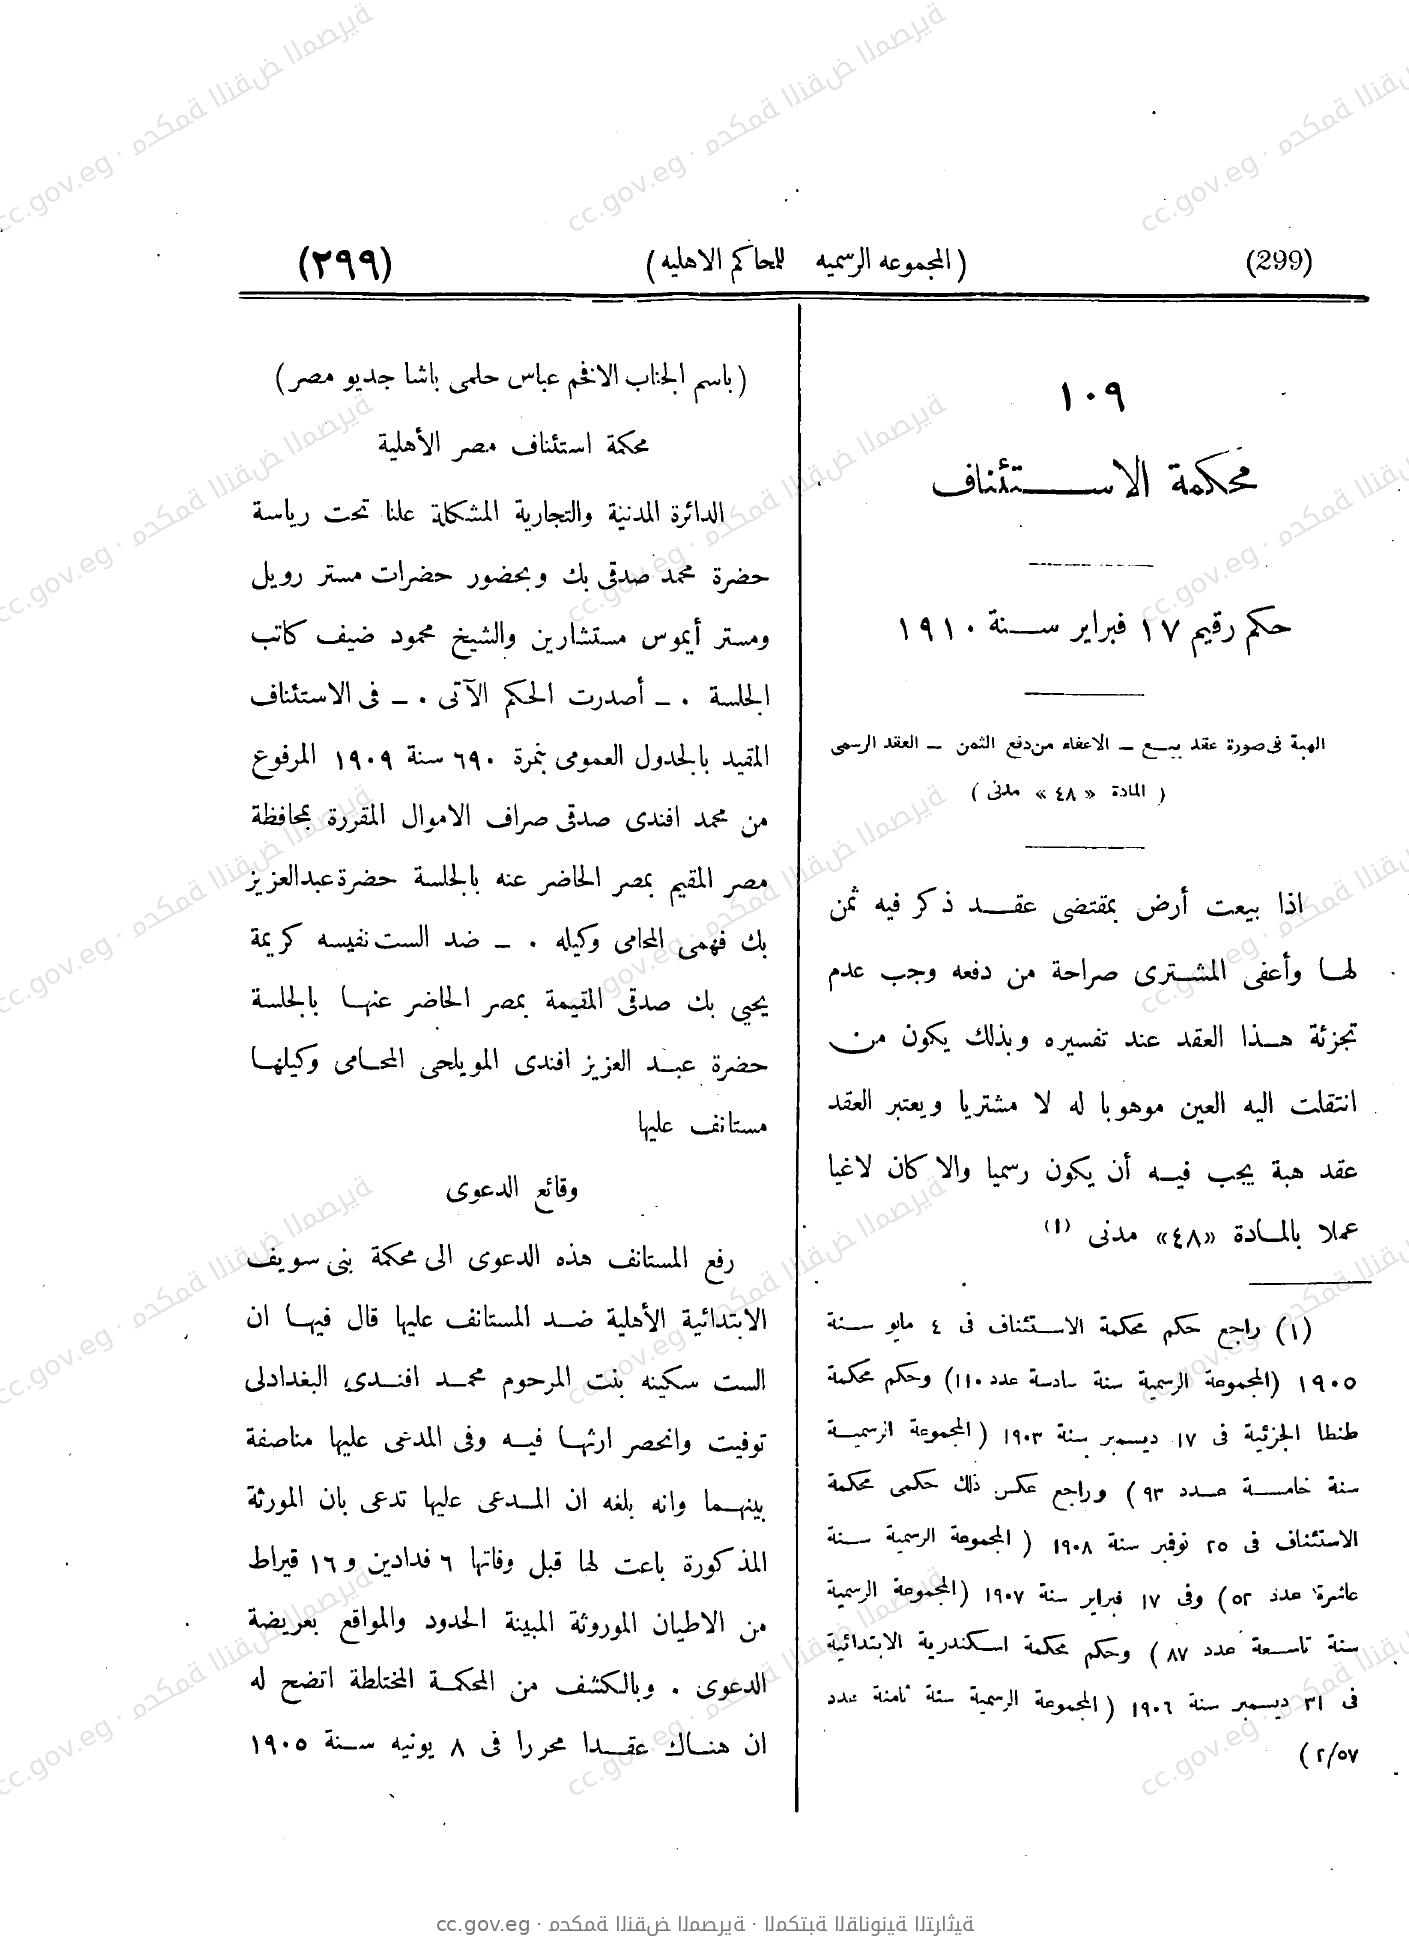 (299) (المجموعه الرسميه للمحاكم الاهليه) (٢٩٩)
١٠٩
محكمة الاستئناف
حكم رقيم ١٧ فبراير سنة ١٩١٠
الهبة فى صورة عقد بيع – الاعفاء من دفع الثمن – العقد الرسمى
( المادة «٤٨» مدنى )
اذا بيعت أرض بمقتضى عقد ذكر فيه ثمن
لها وأعفى المشترى صراحة من دفعه وجب عدم
تجزئة هذا العقد عند تفسيره وبذلك يكون من
انتقلت اليه العين موهوبا له لا مشتريا ويعتبر العقد
عقد هبة يجب فيه أن يكون رسميا والا كان لاغيا
عملا بالمادة «٤٨» مدنى (١)
(١) راجع حكم محكمة الاستئناف فى ٤ مايو سنة
١٩٠٥ (المجموعة الرسمية سنة سادسة عدد ١١٠) وحكم محكمة
طنطا الجزئية فى ١٧ ديسمبر سنة ١٩٠٣ (المجموعة الرسمية
سنة خامسة عدد ٩٣) وراجع عكس ذلك حكمى محكمة
الاستئناف فى ٢٥ نوفمبر سنة ١٩٠٨ (المجموعة الرسمية سنة
عاشرة عدد ٥٢) وفى ١٧ فبراير سنة ١٩٠٧ (المجموعة الرسمية
سنة تاسعة عدد ٨٧) وحكم محكمة اسكندرية الابتدائية
فى ٣١ ديسمبر سنة ١٩٠٦ (المجموعة الرسمية سنة ثامنة عدد
٢/٥٧)
(باسم الجناب الافخم عباس حلمى باشا خديو مصر)
محكمة استئناف مصر الأهلية
الدائرة المدنية والتجارية المشكلة علنا تحت رياسة
حضرة محمد صدقى بك وبحضور حضرات مستر رويل
ومستر أيموس مستشارين والشيخ محمود ضيف كاتب
الجلسة . – أصدرت الحكم الآتى . – فى الاستئناف
المقيد بالجدول العمومى بنمرة ٦٩٠ سنة ١٩٠٩ المرفوع
من محمد افندى صدقى صراف الاموال المقررة بمحافظة
مصر المقيم بمصر الحاضر عنه بالجلسة حضرة عبد العزيز
بك فهمى المحامى وكيله . – ضد الست نفيسه كريمة
يحيي بك صدقى المقيمة بمصر الحاضر عنها بالجلسة
حضرة عبد العزيز افندى المويلحى المحامى وكيلها
مستانف عليها
وقائع الدعوى
رفع المستانف هذه الدعوى الى محكمة بنى سويف
الابتدائية الأهلية ضد المستانف عليها قال فيها ان
الست سكينه بنت المرحوم محمد افندى البغدادلى
توفيت وانحصر ارثها فيه وفى المدعى عليها مناصفة
بينهما وانه بلغه ان المدعى عليها تدعى بان المورثة
المذكورة باعت لها قبل وفاتها ٦ فدادين و ١٦ قيراط
من الاطيان الموروثة المبينة الحدود والمواقع بعريضة
الدعوى . وبالكشف من المحكمة المختلطة اتضح له
ان هناك عقدا محررا فى ٨ يونيه سنة ١٩٠٥
cc.gov.eg · محكمة النقض المصرية · المكتبة القانونية التراثية